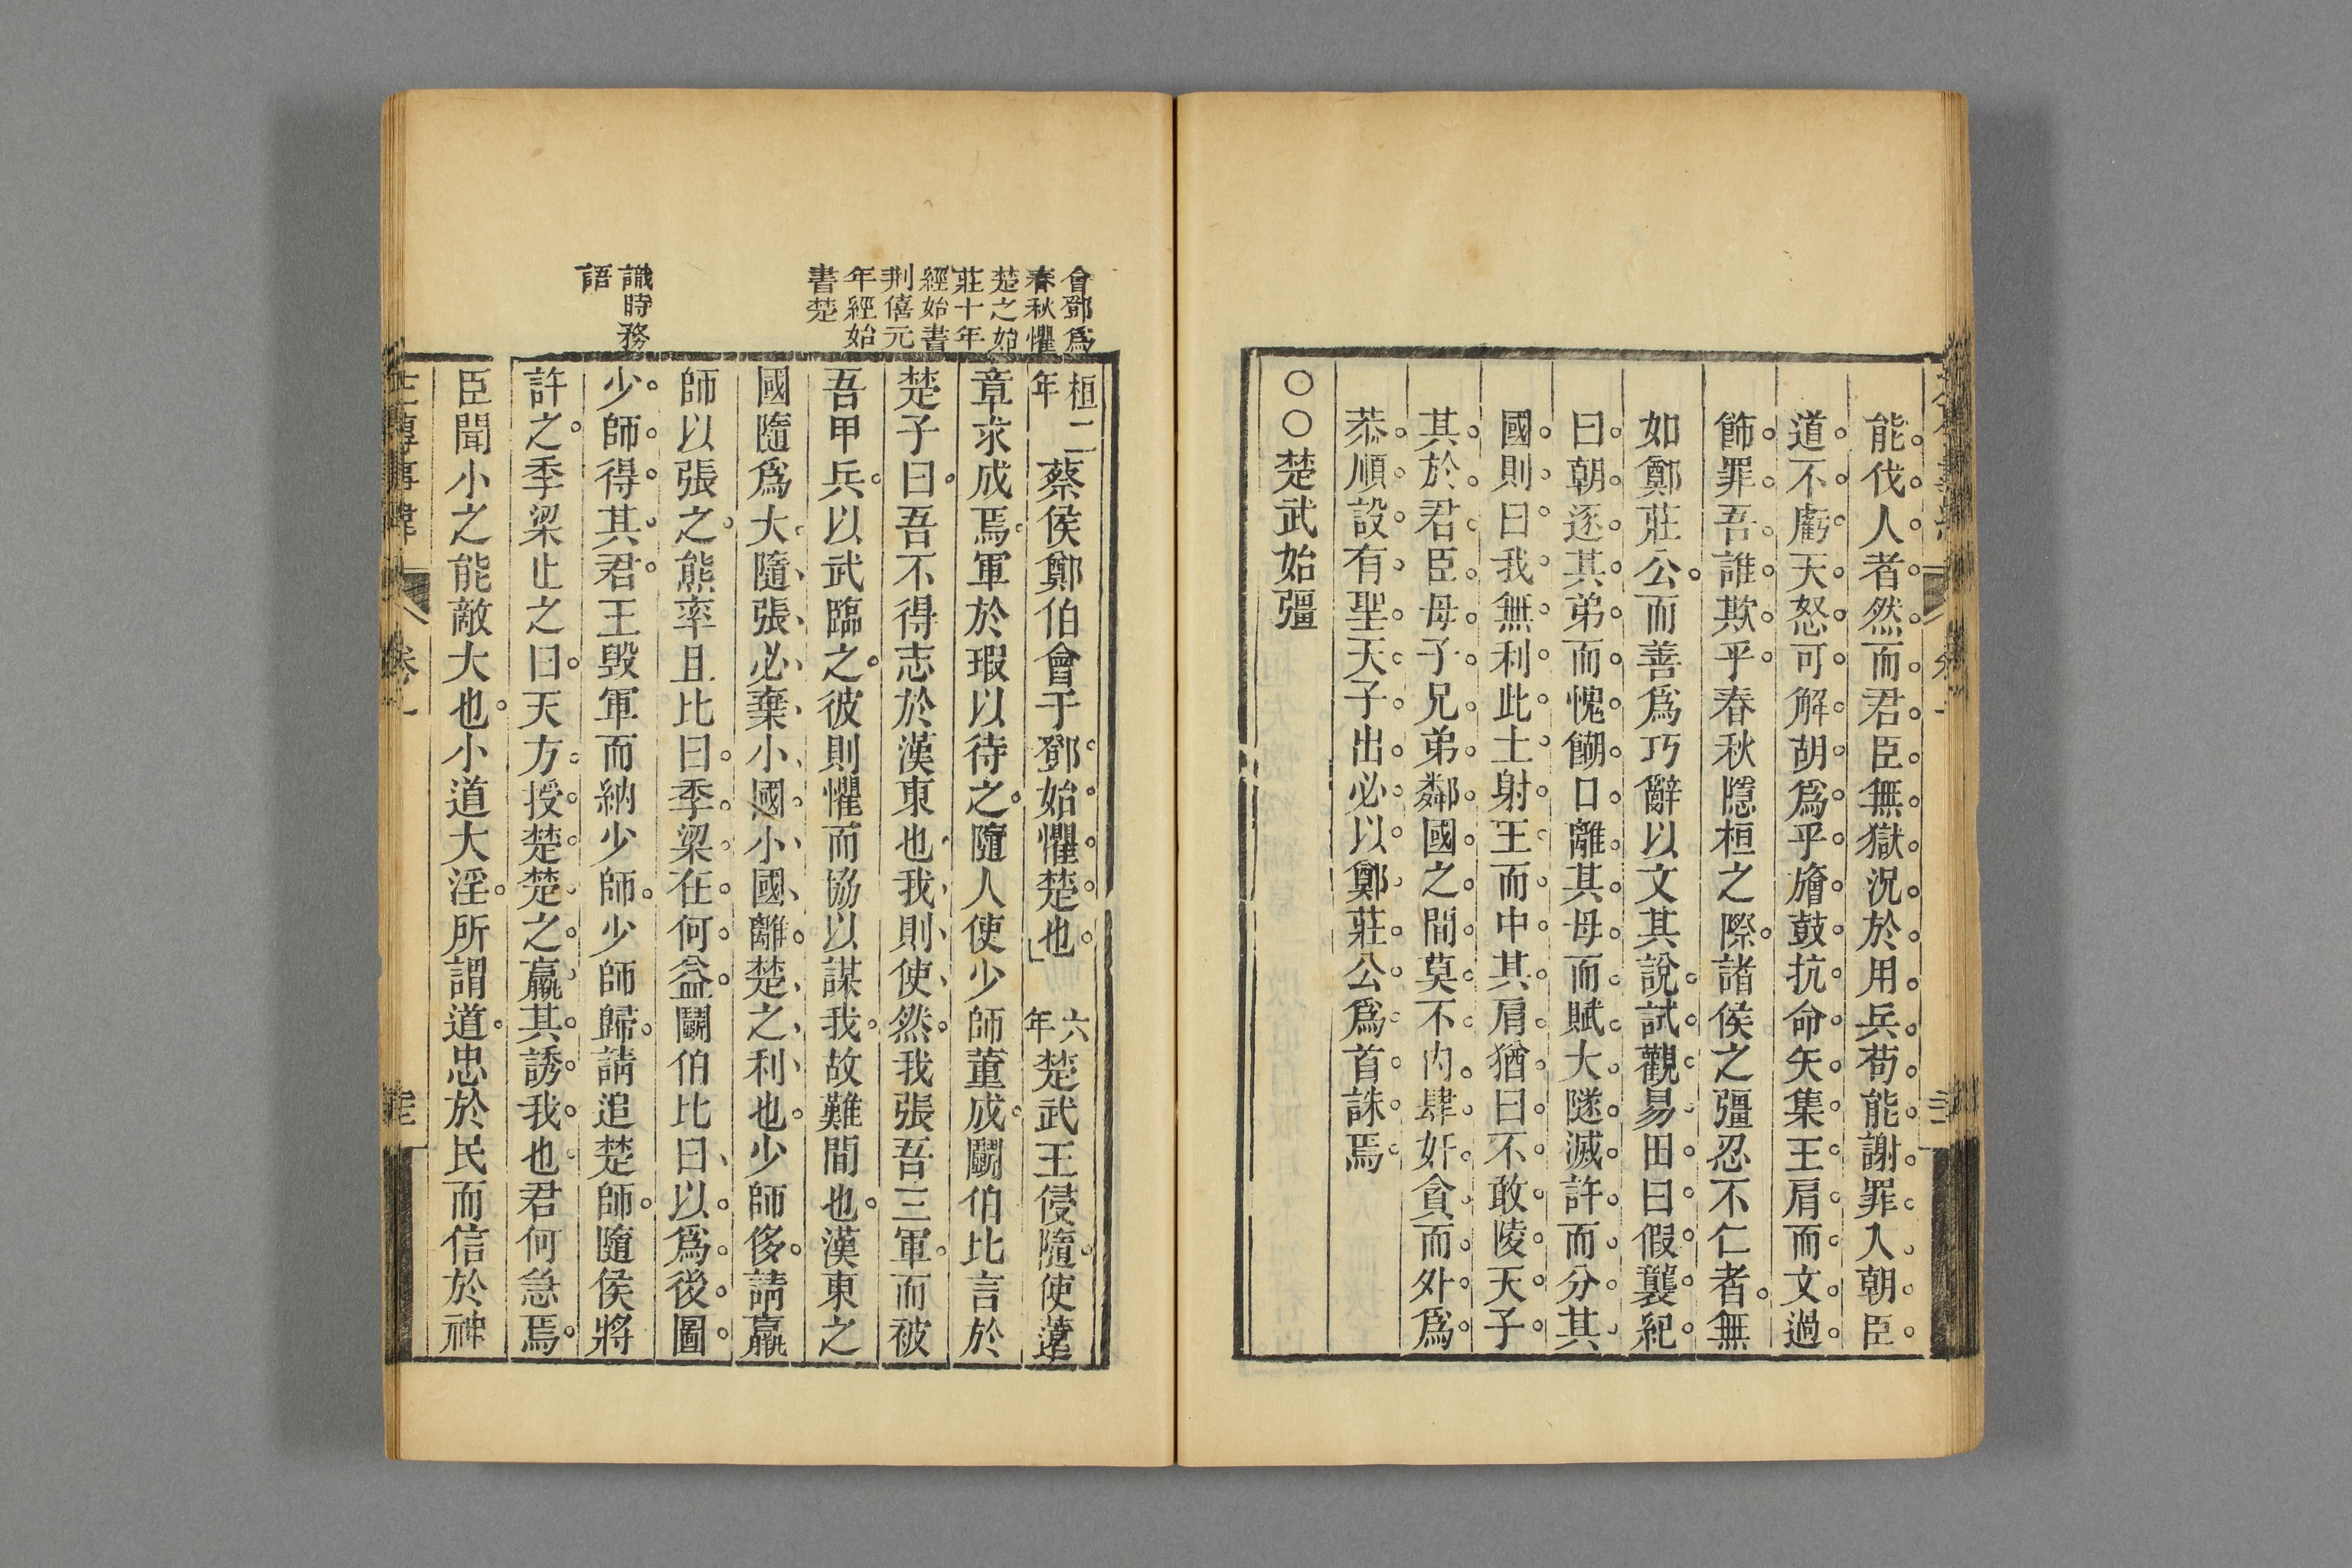 能伐人者然而君臣無獄況於用兵苟能謝罪入朝臣
道不虧天怒可解胡爲乎旝鼓抗命矢集王肩而文過
飾罪吾誰欺乎春秋隱桓之際諸侯之彊忍不仁者無
如鄭莊公而善爲巧辭以文其說試觀易田曰假襲紀
曰朝逐其弟而愧餬口離其母而賦大隧滅許而分其
國則曰我無利此土射王而中其肩猶曰不敢陵天子
其於君臣母子兄弟鄰國之間莫不內肆奸貪而外爲
恭順設有聖天子出必以鄭莊公爲首誅焉
○○楚武始彊
會鄧爲
春秋懼
楚之始
莊十年
經始書
荆僖元
年經始
書楚
識時務
語
桓二年蔡侯鄭伯會于鄧始懼楚也 六年楚武王侵隨使薳
章求成焉軍於瑕以待之隨人使少師董成鬭伯比言於
楚子曰吾不得志於漢東也我則使然我張吾三軍而被
吾甲兵以武臨之彼則懼而協以謀我故難間也漢東之
國隨爲大隨張必棄小國小國離楚之利也少師侈請羸
師以張之熊率且比曰季梁在何益鬭伯比曰以爲後圖
少師得其君王毀軍而納少師少師歸請追楚師隨侯將
許之季梁止之曰天方授楚楚之羸其誘我也君何急焉
臣聞小之能敵大也小道大淫所謂道忠於民而信於神
左傳事緯 卷一